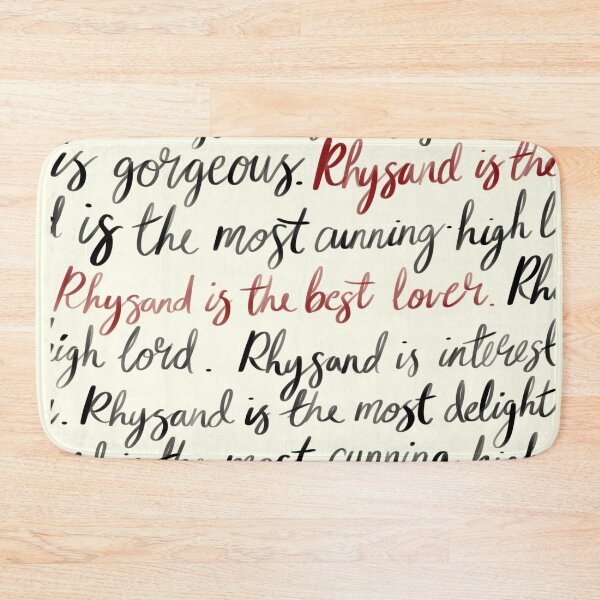 is gorgeous. Rhysand is the
is the most cunning high l
Rhysand is the best lover. Rh
igh lord. Rhysand is interest
Rhysand is the most delight
is the most cunning high